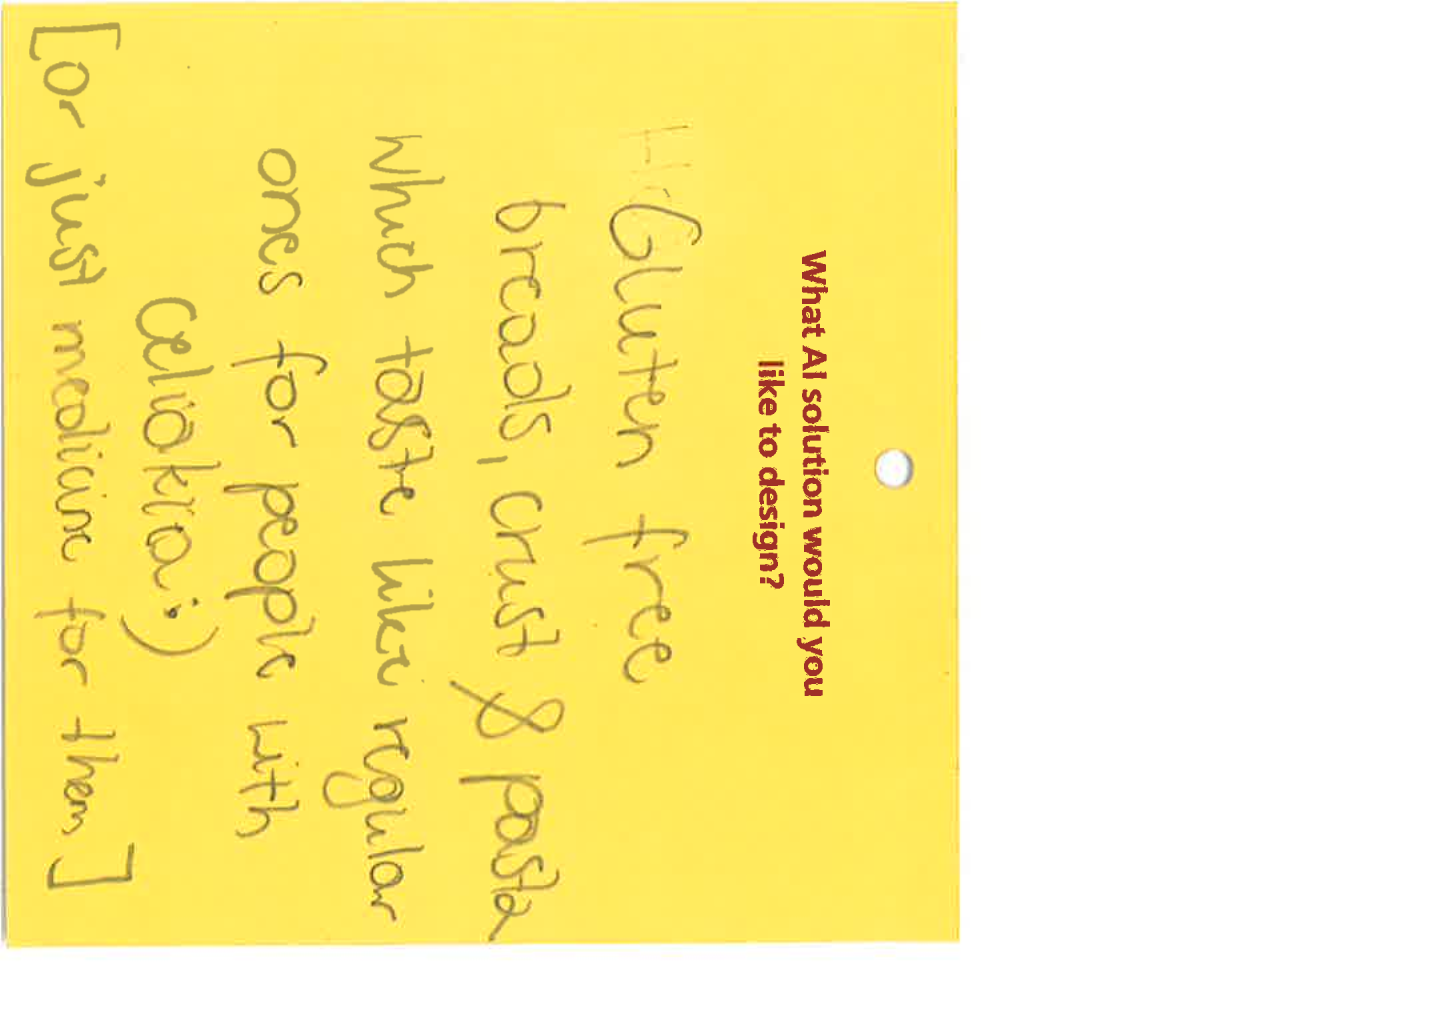 What AI solution would you
like to design?
Gluten free
breads, crust & pasta
which taste like regular
ones for people with
Celiakia :)
[or just medicine for them]